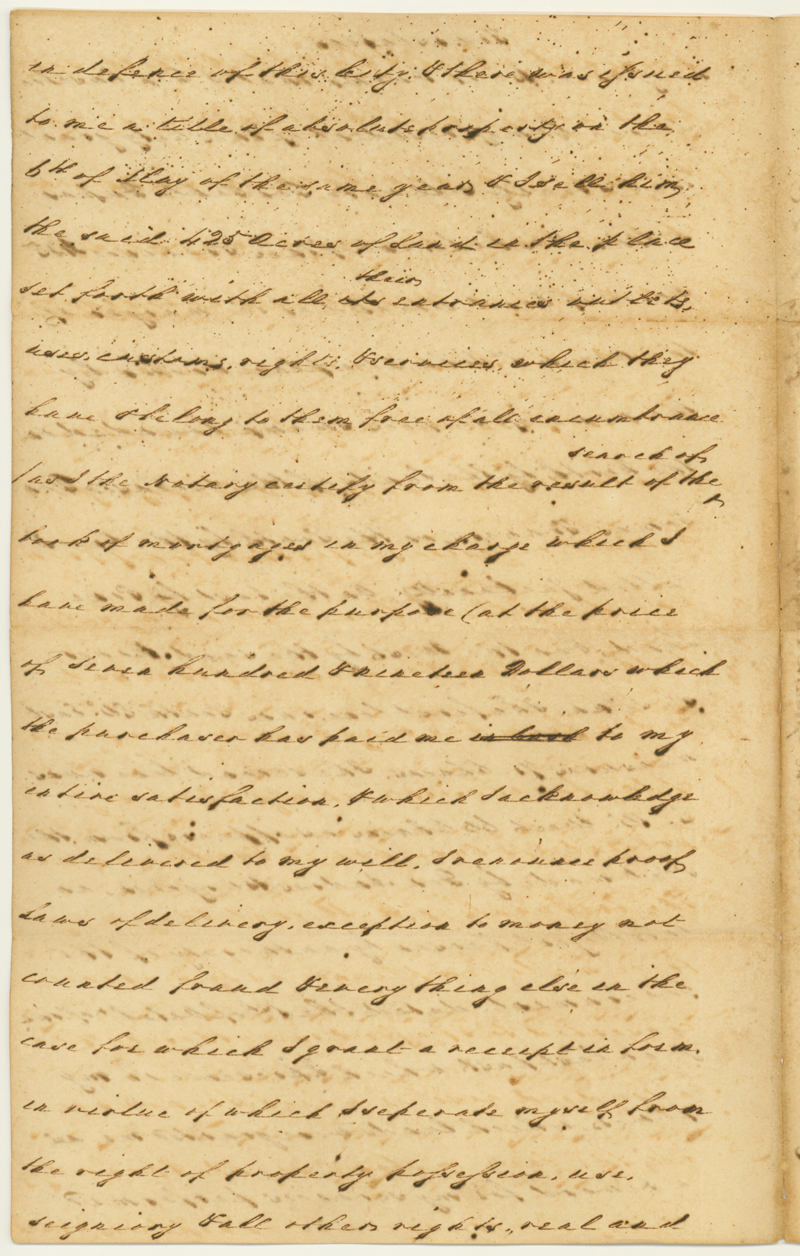 in defence of this City, & there was issued
to me a title of absolute property on the
6th of May of the same year & I sell him,
the said 425 Acres of Land in the place
their
set forth with all its entrances outlets,
uses, customs, rights, & services, which they
have & belong to them free of all encumbrance
search of
(as I the Notary certify from the result of the
book of mortgages in my charge which I
have made for the purpose (at the price
of Seven hundred & nineteen Dollars which
the purchaser has paid me to my
entire satisfaction, & which I acknowledge
as delivered to my will, I renounce proof,
Laws of delivery, exception to money not
counted fraud & every thing else in the
case for which I grant a receipt in form.
in virtue of which I seperate myself from
the right of property possession, use,
seigniory & all other rights, real and